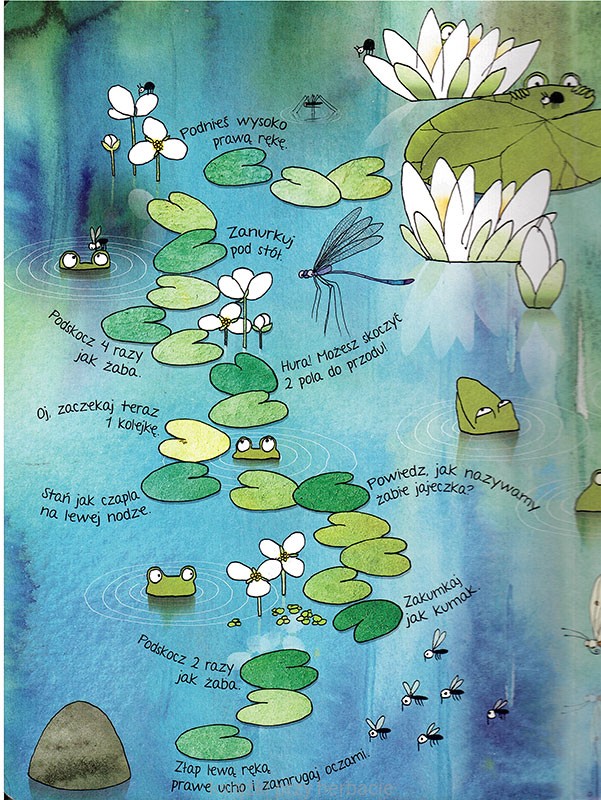 Podnieś wysoko
prawą rękę.
Zanurkuj
pod stół.
Podskocz 4 razy
jak żaba.
Hura! Możesz skoczyć
2 pola do przodu!
Oj, zaczekaj teraz
1 kolejkę.
Stań jak czapla
na lewej nodze.
Powiedz, jak nazywamy
żabie jajeczka?
Zakumkaj
jak kumak.
Podskocz 2 razy
jak żaba.
Złap lewą ręką
prawe ucho i zamrugaj oczami.
herbacie